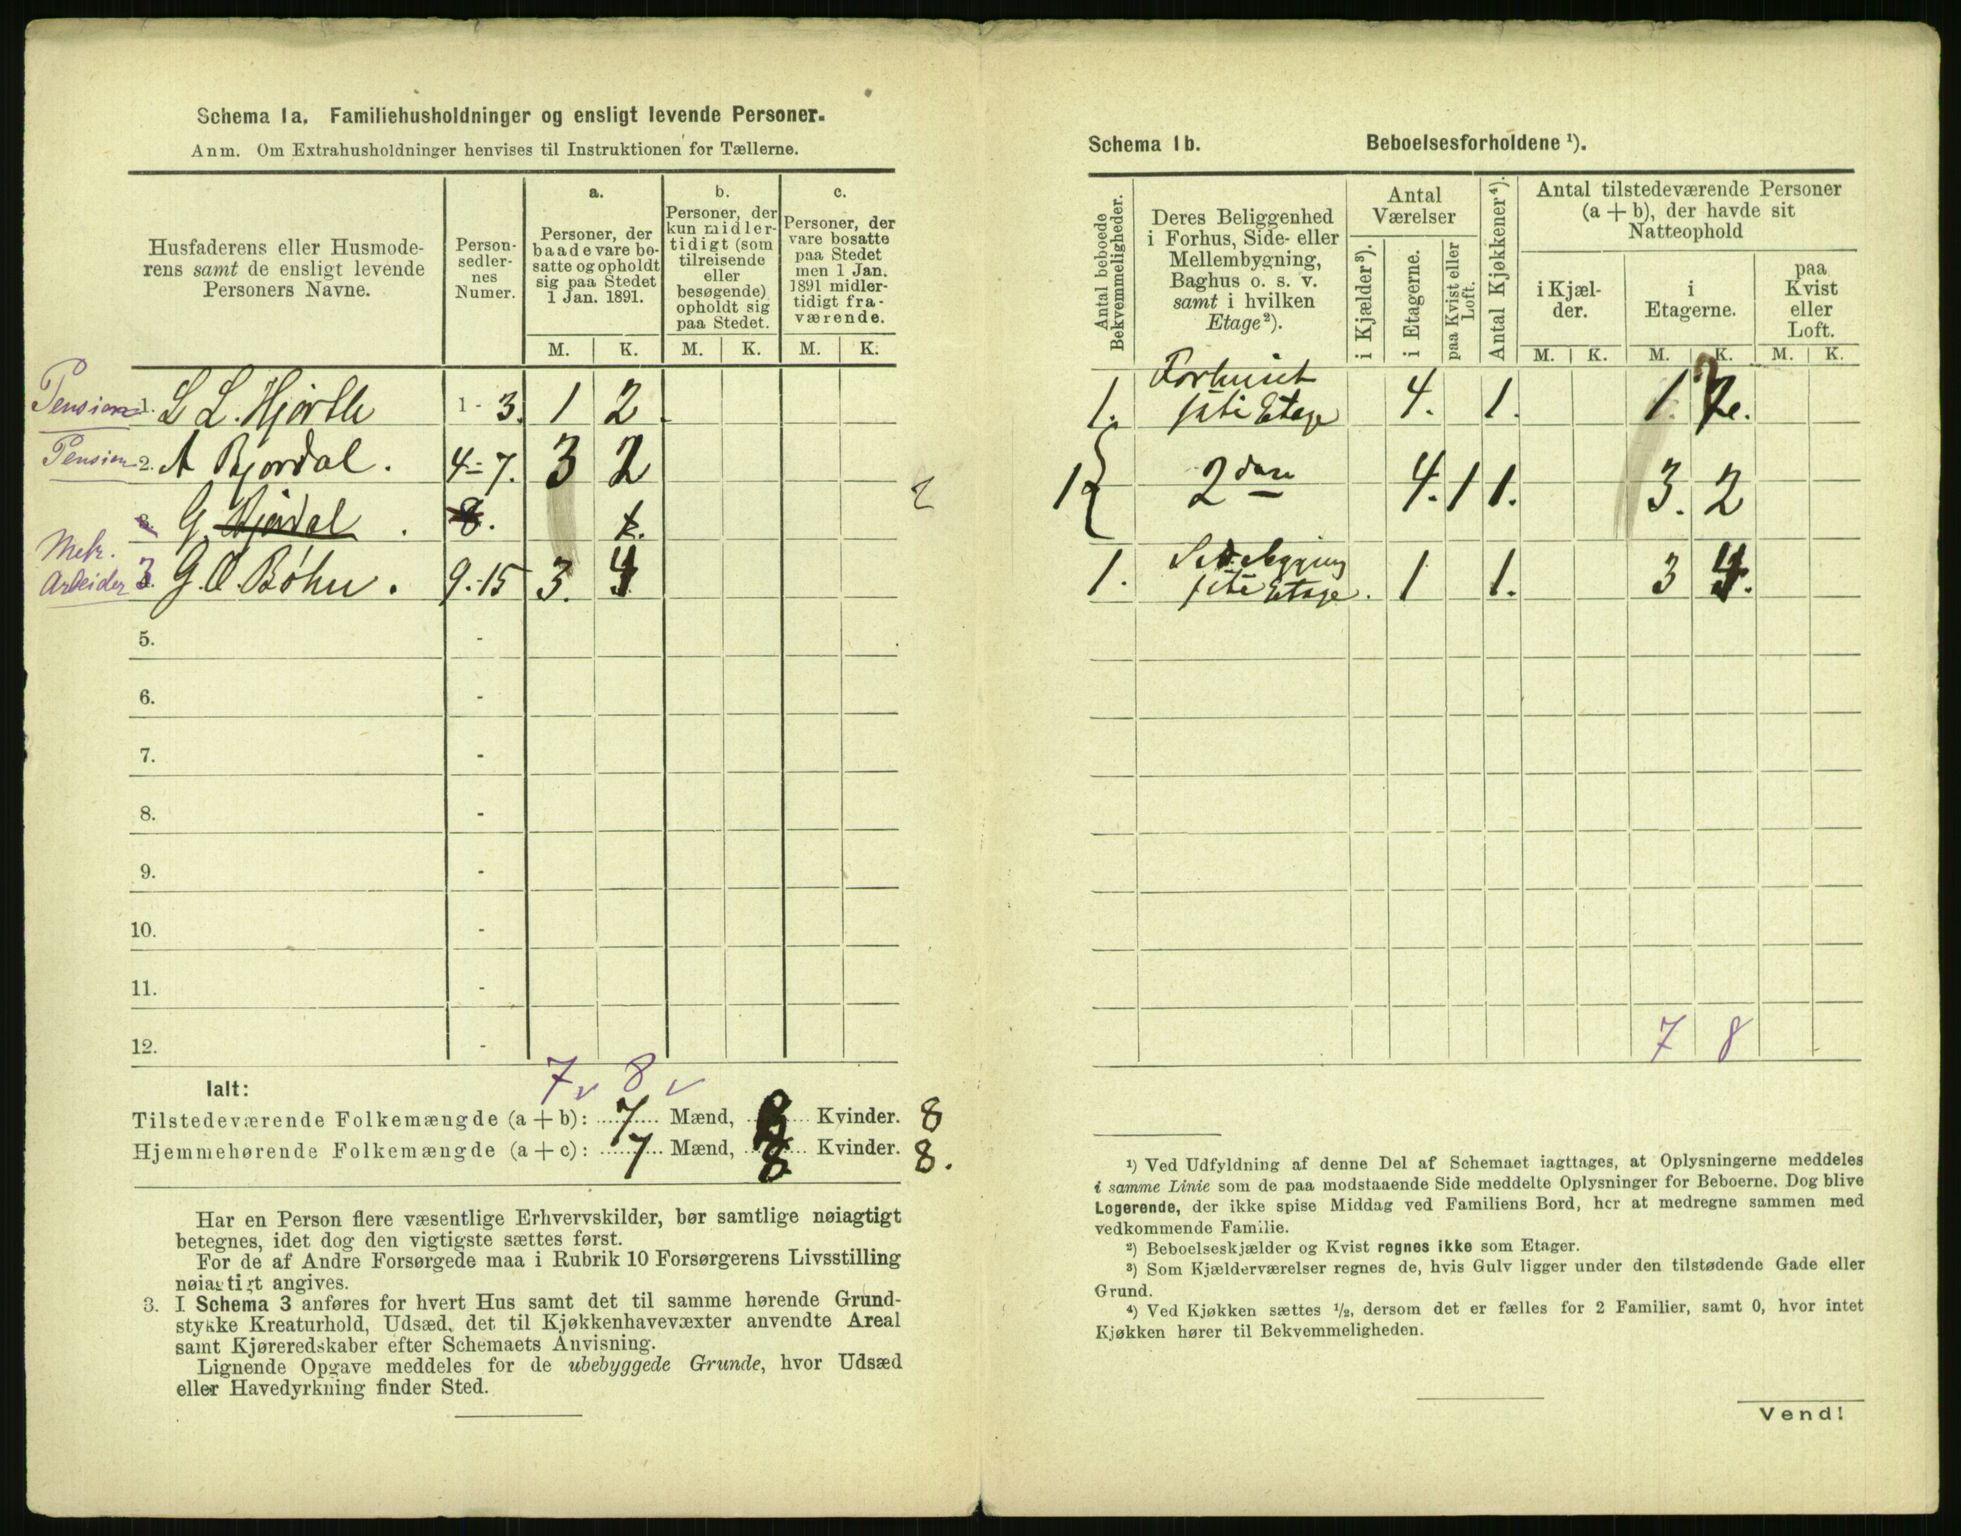 Schema 1a. Familiehusholdninger og ensligt levende Personer.
Anm. Om Extrahusholdninger henvises til Instruktionen for Tællerne.
Husfaderens eller Husmode-
rens samt de ensligt levende
Personers Navne.
Person-
sedler-
nes
Numer.
a.
Personer, der
baade vare bo-
satte og opholdt
sig paa Stedet
1 Jan. 1891.
b.
Personer, der
kun midler-
tidigt (som
tilreisende
eller
besøgende)
opholdt sig
paa Stedet.
c.
Personer, der
vare bosatte
paa Stedet
men 1 Jan.
1891 midler-
tidigt fra-
værende.
M. K. M. K. M. K.
Pension 1. L L. Hjorth 1 - 3. 1 2
Pension 2. A Bjordal. 4-7. 3 2
3. G. Bjordal. 8.
2
Mek.
Arbeider 3. G. O. Bøhn. 9-15 3. 4
5. -
6. -
7. -
8. -
9. -
10. -
11. -
12. -
7 v 8 v
Ialt:
Tilstedeværende Folkemængde (a + b): 7 Mænd, 8 Kvinder. 8
Hjemmehørende Folkemængde (a + c): 7 Mænd, 8 Kvinder. 8.
Har en Person flere væsentlige Erhvervskilder, bør samtlige nøiagtigt
betegnes, idet dog den vigtigste sættes først.
For de af Andre Forsørgede maa i Rubrik 10 Forsørgerens Livsstilling
nøiagtigt angives.
3. I Schema 3 anføres for hvert Hus samt det til samme hørende Grund-
stykke Kreaturhold, Udsæd, det til Kjøkkenhavevæxter anvendte Areal
samt Kjøreredskaber efter Schemaets Anvisning.
Lignende Opgave meddeles for de ubebyggede Grunde, hvor Udsæd
eller Havedyrkning finder Sted.
Schema 1b. Beboelsesforholdene ¹).
Antal beboede
Bekvemmeligheder.
Deres Beliggenhed
i Forhus, Side- eller
Mellembygning,
Baghus o. s. v.
samt i hvilken
Etage ²).
Antal
Værelser
i Kjælder ³).
i Etagerne.
paa Kvist eller
Loft.
Antal Kjøkkener ⁴).
Antal tilstedeværende Personer
(a + b), der havde sit
Natteophold
i Kjæl-
der.
i
Etagerne.
paa
Kvist
eller
Loft.
M. K. M. K. M. K.
Forhuset
1. 1ste Etage 4. 1. 1. 2.
1 2den 4. 1 1. 3. 2
Sidebygning
1. 1ste Etage. 1 1. 3 4.
7 8
¹) Ved Udfyldning af denne Del af Schemaet iagttages, at Oplysningerne meddeles
i samme Linie som de paa modstaaende Side meddelte Oplysninger for Beboerne. Dog blive
Logerende, der ikke spise Middag ved Familiens Bord, her at medregne sammen med
vedkommende Familie.
²) Beboelseskjælder og Kvist regnes ikke som Etager.
³) Som Kjælderværelser regnes de, hvis Gulv ligger under den tilstødende Gade eller
Grund.
⁴) Ved Kjøkken sættes ¹/₂, dersom det er fælles for 2 Familier, samt 0, hvor intet
Kjøkken hører til Bekvemmeligheden.
Vend!